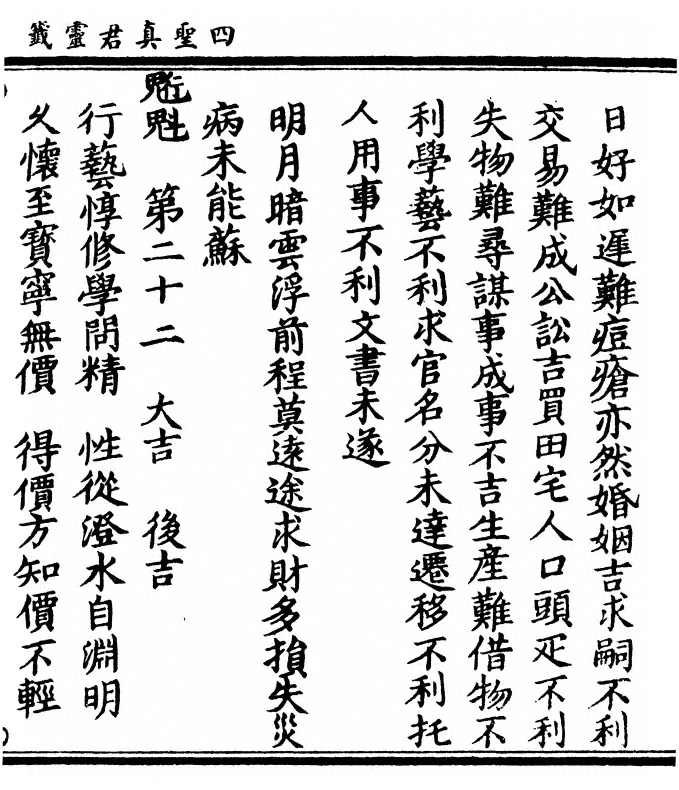 四聖真君靈籤
日好如遲難痘瘡亦然婚姻吉求嗣不利
交易難成公訟吉買田宅人口頭疋不利
失物難尋謀事成事不吉生產難借物不
利學藝不利求官名分未達遷移不利托
人用事不利文書未遂
明月暗雲浮前程莫遠途求財多損失災
病未能蘇
魁 第二十二 大吉 後吉
行藝惇修學問精 性從澄水自淵明
久懷至寶寧無價 得價方知價不輕